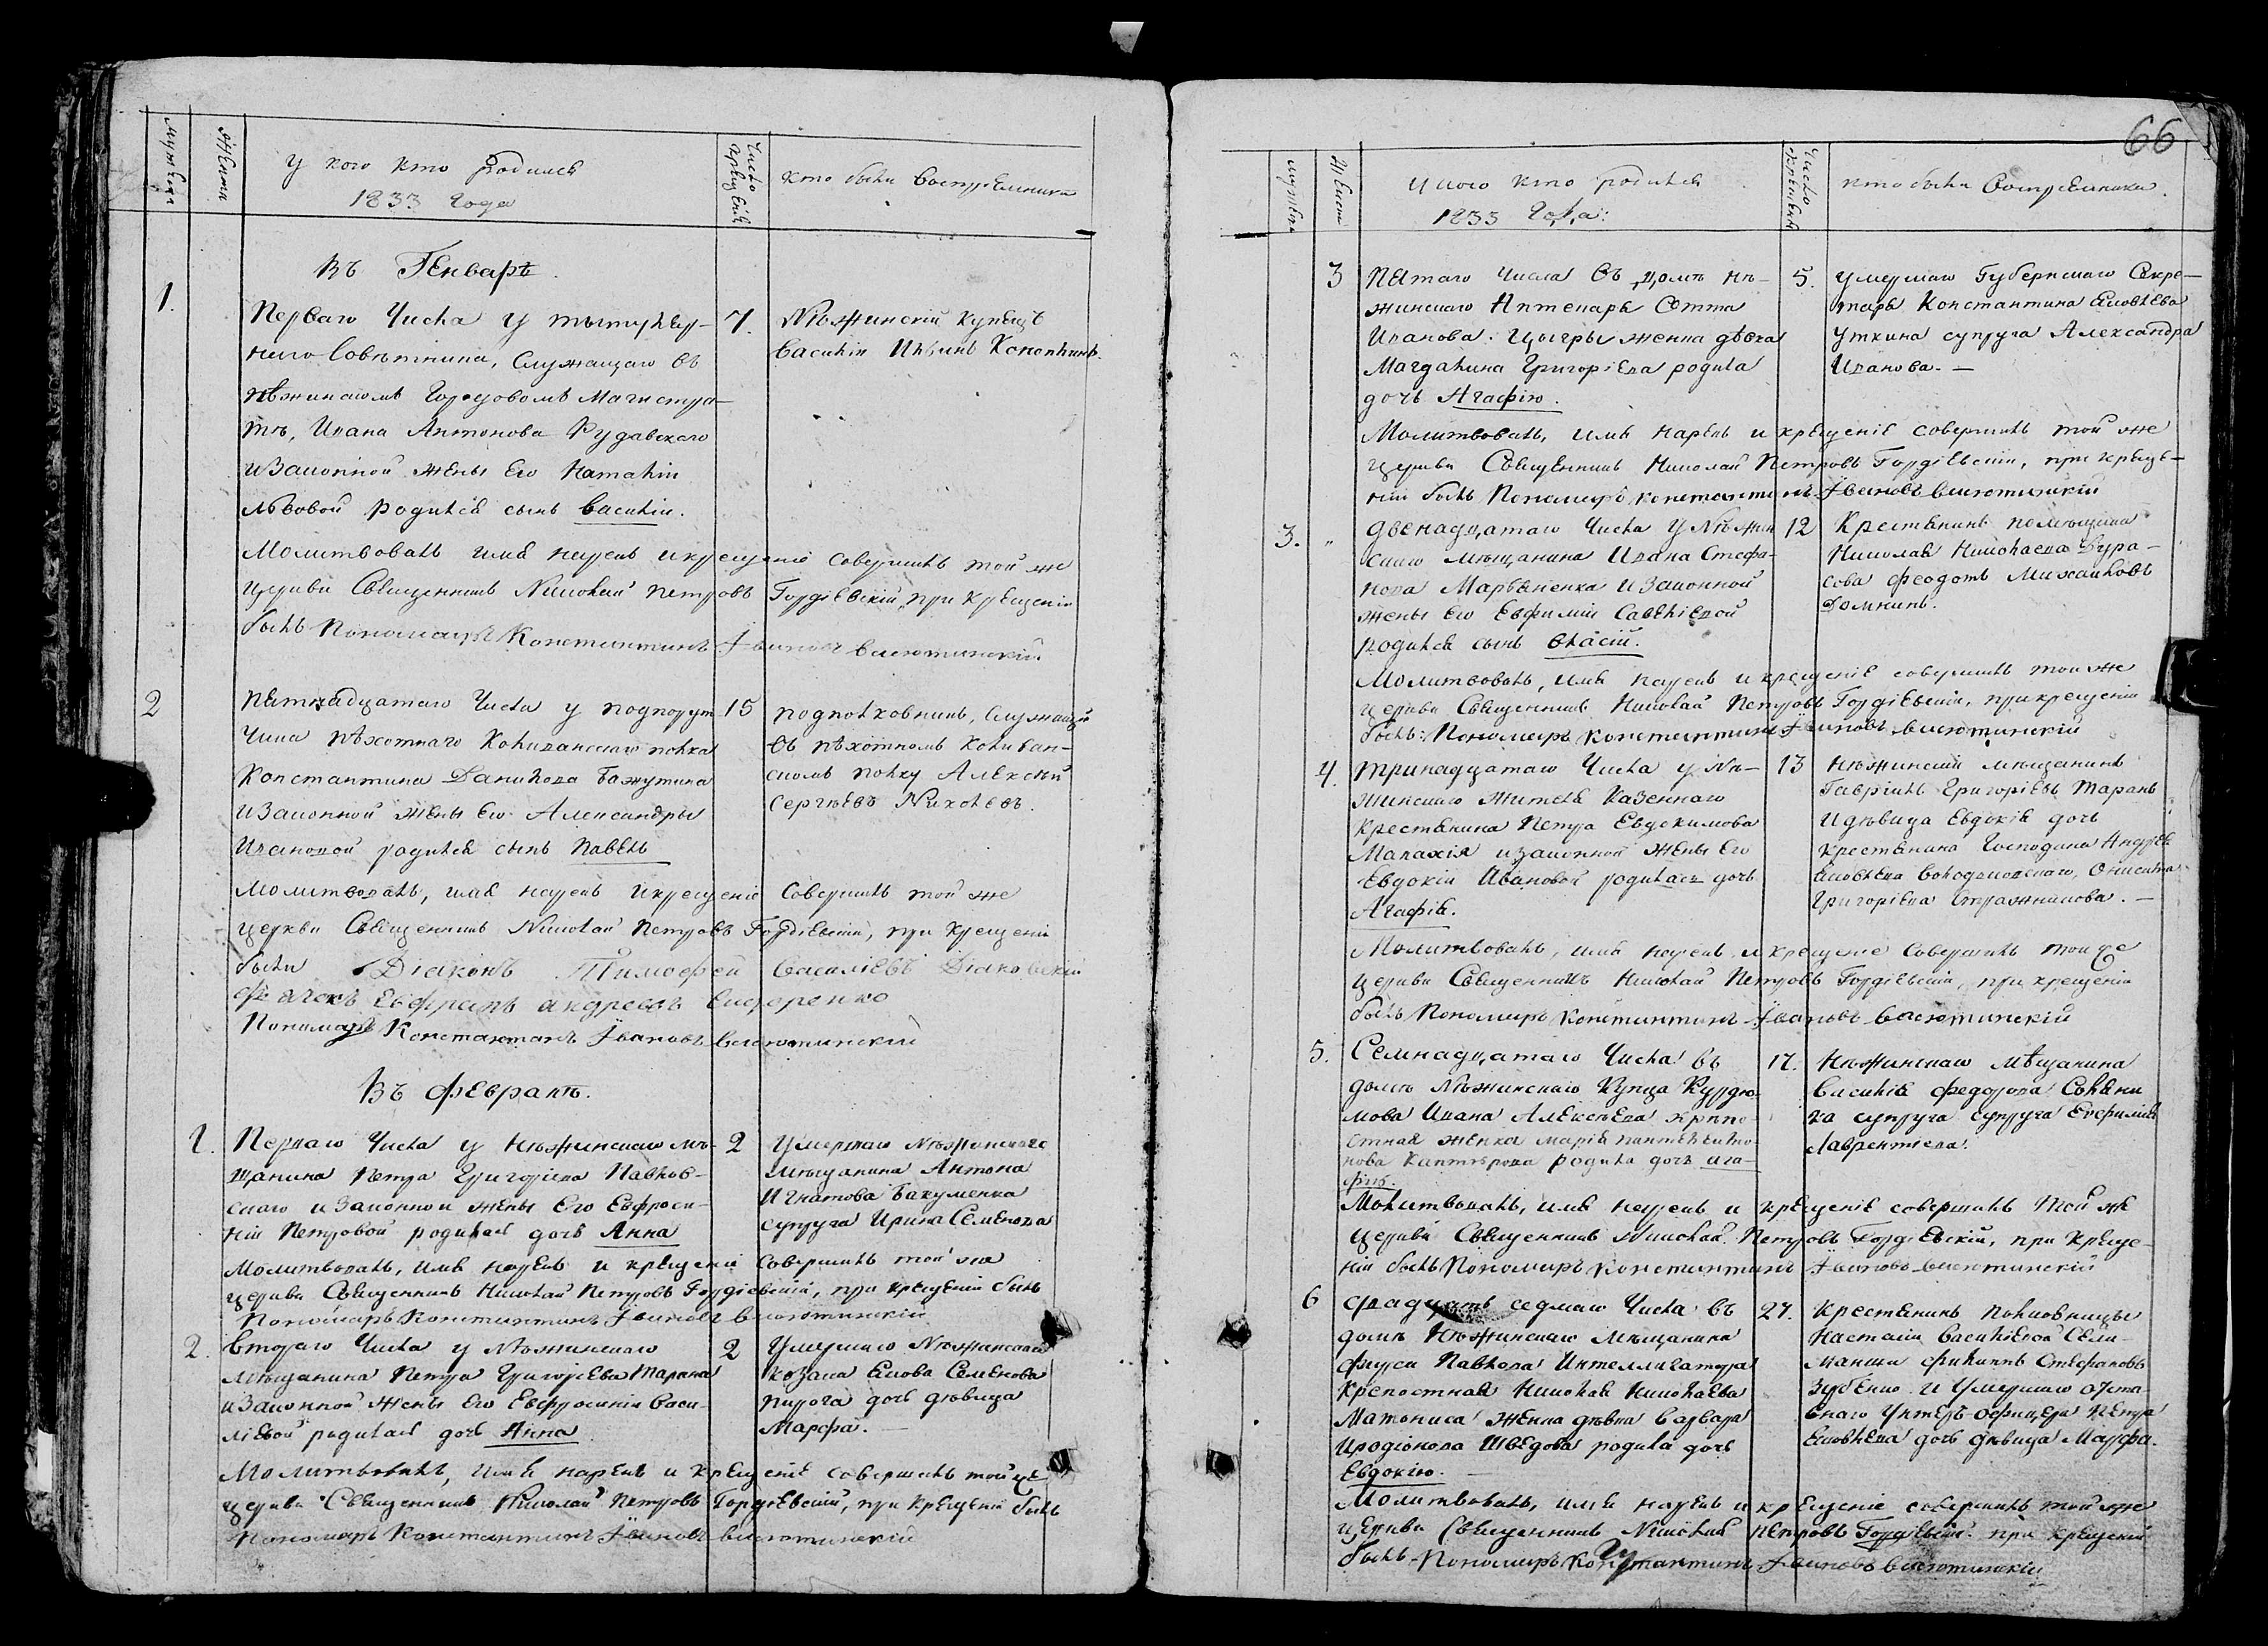 Мужеска
Женска
У кого кто родился
1833 Года
Число крещенія
Кто были восприемники
Въ Генваръ.
1.
Перваго Числа у титуляр-
наго Совѣтника, Служащаго въ
нѣжинскомъ Городовомъ Магистра-
тѣ, Ивана Антонова Рудавскаго
и Законной жены Его Наталіи
Львовой родился сынъ Василій.
7.
Нѣжинскій купецъ
Василій Ильинъ
Молитвовалъ имя нарекъ и крещеніе совершилъ той же
церкви Священникъ Николай Петровъ Гордіевскій, при крещеніи
былъ Пономарь Константинъ Ѳвановъ Васютинскій
2
Пятнадцатаго Числа у подпорут
чика пѣхотнаго Колыванскаго полка
Константина Данилова Бажутина
и Законной жены Его Александры
Ивановой родился сынъ Павелъ
15
подполковникъ, Служащій
въ пѣхотномъ Колыван-
скомъ полку Алексѣй
Сергѣевъ
Молитвовалъ, имя нарекъ и крещеніе совершилъ той же
церкви Священникъ Николай Петровъ Гордіевскій, при крещеніи
были Діаконъ Тимофей Василіевъ Діаковскій
дячокъ Евфремъ андреевъ
Пономарь Константинъ Ивановъ Васютинскій
Въ Февралъ.
1.
Перваго Числа у Нѣжинскаго мѣ-
щанина Петра Григоріева Павлов-
скаго и Законной жены Его Евфроси-
ніи Петровой родилась дочь Анна
2
Умершаго Нѣжинскаго
мѣщанина Антона
Игнатова Бакуменка
супруга Ирина Семенова
Молитвовалъ, имя нарекъ и крещеніе совершилъ той же
церкви Священникъ Николай Петровъ Гордіевскій, при крещеніи былъ
Пономарь Константинъ Ивановъ Васютинскій
2.
Втораго Числа у Нѣжинскаго
мѣщанина Петра Григорьева Тарана
и Законной жены Его Евфросиніи Васи-
ліевой родилась дочь Анна
2
Умершаго Нѣжинскаго
козака Якова Семенова
пирога дочь дѣвица
Марфа.
Молитвовалъ, имя нарекъ и крещеніе совершилъ той же
церкви Священникъ Николай Петровъ Гордіевскій, при крещеніи былъ
Пономарь Константинъ Ивановъ Васютинскій
66
Мужеска
Женск
У кого кто родился
1833 Года:
Число крещенія
Кто были восприемники.
3
Пятаго числа въ домѣ нѣ-
жинскаго Аптекаря Сотта
Иванова. женка дѣвка
Магдалина Григоріева родила
дочь Агафію.
5.
умершаго Губернскаго Секре-
таря Константина Яковлева
Уткина супруга Александра
Иванова.
Молитвовалъ, имя нарекъ и крещеніе совершилъ той же
церкви Священникъ Николай Петровъ Гордіевскій, при креще-
ніи былъ Пономарь Константинъ Ивановъ Васютинскій
3. "
Двенадцатаго Числа У Нѣжин
скаго мѣщанина Ивана Стефа-
нова Марьяненка и Законной
жены Его Евфиміи Савеліевой
родился сынъ Власій.
12
Крестянинъ помѣщика
Николая Николаева Дура-
сова Феодотъ Михайловъ
Домнинъ.
Молитвовалъ, имя нарекъ и крещеніе совершилъ той же
церкви Священникъ Николай Петровъ Гордіевскій, при крещеніи
былъ: Пономарь Константинъ Ивановъ Васютинскій
4.
Тринадцатаго Числа у Нѣ-
жинскаго жителя Казеннаго
крестянина Петра Евдокимова
Малахія и законной жены Его
Евдокіи Ивановой родилась дочь
Агафія.
13
Нѣжинскій мѣщанинъ
Гавріилъ Григоріевъ Таранъ
И дѣвица Евдокія дочь
крестянина Господина Андрея
Яковлева Володковскаго, Онисима
Григоріева Стражникова.
Молитвовалъ, имя нарекъ и крещеніе совершилъ той же
церкви Священникъ Николай Петровъ Гордіевскій, при крещеніи
былъ Пономарь Константинъ Ивановъ Васютинскій
5.
Семнадцатаго Числа въ
домѣ Нѣжинскаго Купца Курдю-
мова Ивана Алексѣева крѣпо-
стная женка Марія Пантелеимо-
нова родила дочь Ага-
фію.
17.
Нѣжинскаго мѣщанина
Василія Федорова
ка супруга супруга Евфимія
Лаврентіева.
Молитвовалъ, имя нарекъ и крещеніе совершилъ той же
церкви Священникъ Николай Петровъ Гордіевскій, при креще-
ніи былъ Пономарь Константинъ Ивановъ Васютинскій
6
двадцать седмаго Числа въ
домѣ Нѣжинскаго мѣщанина
Фирса Павлова Интеллигатора
крепостная Николая Николаева
женка дѣвка Варвара
Иродіонова Шведова родила дочь
Евдокію.
27.
Крестянинъ Полковницы
Настасіи Василіевой Сели-
Филиппъ Стефановъ
Зубенко и Умершаго отста-
внаго Унтеръ-офицера Петра
Яковлева дочь дѣвица Марфа.
Молитвовалъ, имя нарекъ и крещеніе совершилъ той же
церкви Священникъ Николай Петровъ Гордіевскій при крещеніи
былъ Пономарь Константинъ Ивановъ Васютинскій